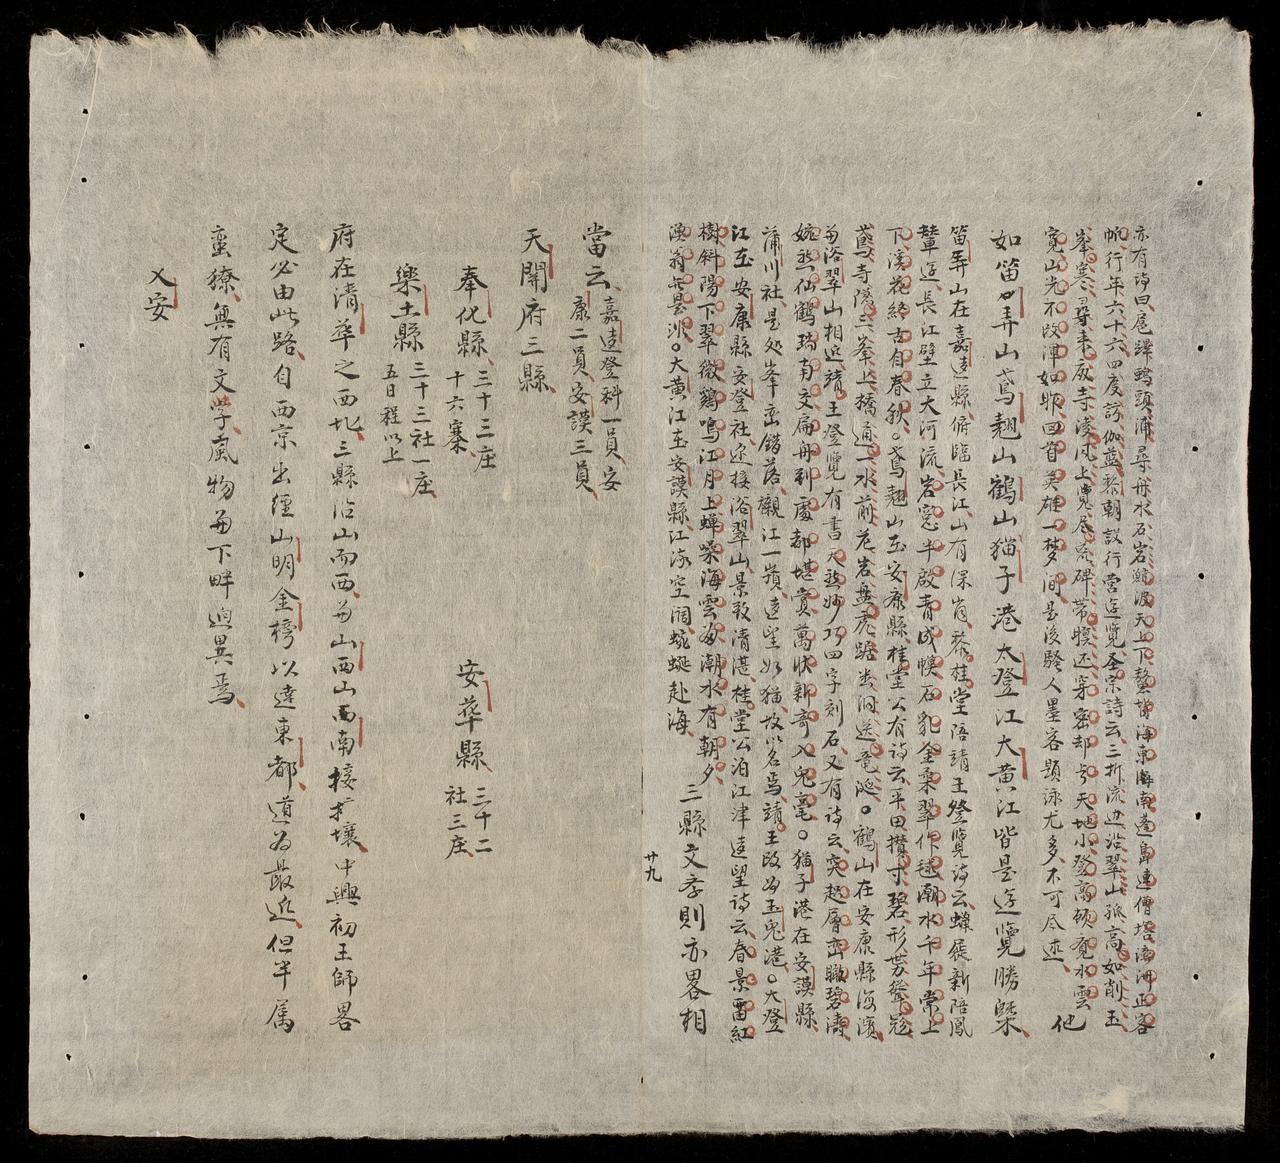 亦有詩曰尾繹鴨頭浦尋舟水石岩歸波天上下螯背海東南蓬島連僧塔滄洲正客
帆行年六十六四度訪伽藍黎朝設行宮遊覽圣宗詩云三折流边浴翠山孤高如削玉
峯寒尋来廢寺淩风上覽尽荒碑帯暝还穿密却亏天地小登高頓覚水雲
寛山光不改渾如昨回首英雄一梦间是後騷人墨客題泳尤多不可尽述 他
如笛弄山鳶翹山鶴山猫子港大登江大黄江皆是遊覽勝槩
笛弄山在嘉遠縣俯臨長江山有深肖黎桂堂陪靖王登覽詩云蠟屐新陪鳳
輦遊長江壁立大河流岩窓半啟青成幙石豹全桑翠作毬潮水千年常上
下溪花終古自春秋○鳶翹山在安康縣桂堂公有詩云平田攢寸碧形势聳
鳶寺隱三峯上橋通一水前花岩盤虎踞岩洞送竜涎○鶴山在安康縣海濱
与浴翠山相近靖王登覽有書天然妙巧四字刻石又有詩云突起層巒瞰碧濤
婉然仙鶴瑞南交扁舟到處都堪賞萬狀新奇入兎毫○猫子港在安謨縣
蒲川社是処峯巒錯落襯江一嶺遠望如猫故以名焉靖王改为玉兎港○大登
江在安康縣安登社近接浴翠山景致清湛桂堂公泊江津遠望詩云春景畱紅
樹斜陽下翠微鷄鳴江月上蟬噪海雲歸潮水有朝夕
漁翁無是非○大黄江在安謨縣江流空闊蜿蜒赴海 三縣文学則亦畧相
廿九
當云嘉遠登科一員安
康二員安謨三員
天關府三縣
奉化縣三十三庄
十六寨
安華縣三十二
社三庄
樂土縣三十三社一庄
五日程以上
府在清華之西北三縣沿山而西与山西山西南接扩壤中興初王師畧
定必由此路自西京出經山明金榜以達東都道为最近但半属
蛮獠無有文学風物与下畔迥異焉
乂安